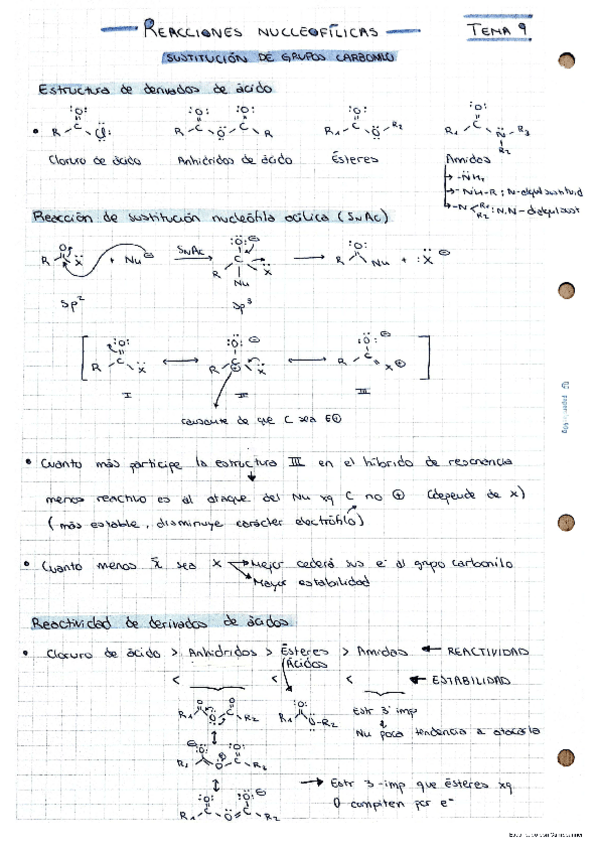 REACCIONES NUCLEOFÍLICAS
TEMA 9
SUSTITUCIÓN DE GRUPOS CARBONILO
Estructura de derivados de ácido
Cloruro de ácido Anhídridos de ácido Ésteres Amidas
-NH₂
-NH-R : N-alquilsustituid
-N R₁ R₂ : N,N-dialquilsust
Reacción de sustitución nucleófila acílica (SNAc)
R X + Nu⊖ SNAc R C X Nu R Nu + :X⊖
sp² sp³
I II III
causante de que C sea E⊕
• Cuanto más participe la estructura III en el híbrido de resonancia
menos reactivo es al ataque del Nu xq C no ⊕ (depende de X)
(más estable, disminuye carácter electrófilo)
• Cuanto menos x̄ sea X Mejor cederá sus e⁻ al grupo carbonilo
Mayor estabilidad
Reactividad de derivados de ácidos
• Cloruro de ácido > Anhídridos > Ésteres > Amidas ← REACTIVIDAD
Ácidos
< < < ← ESTABILIDAD
Estr 3 imp
Nu poca tendencia a atacarla
→ Estr 3 -imp que ésteres xq
O compiten por e⁻